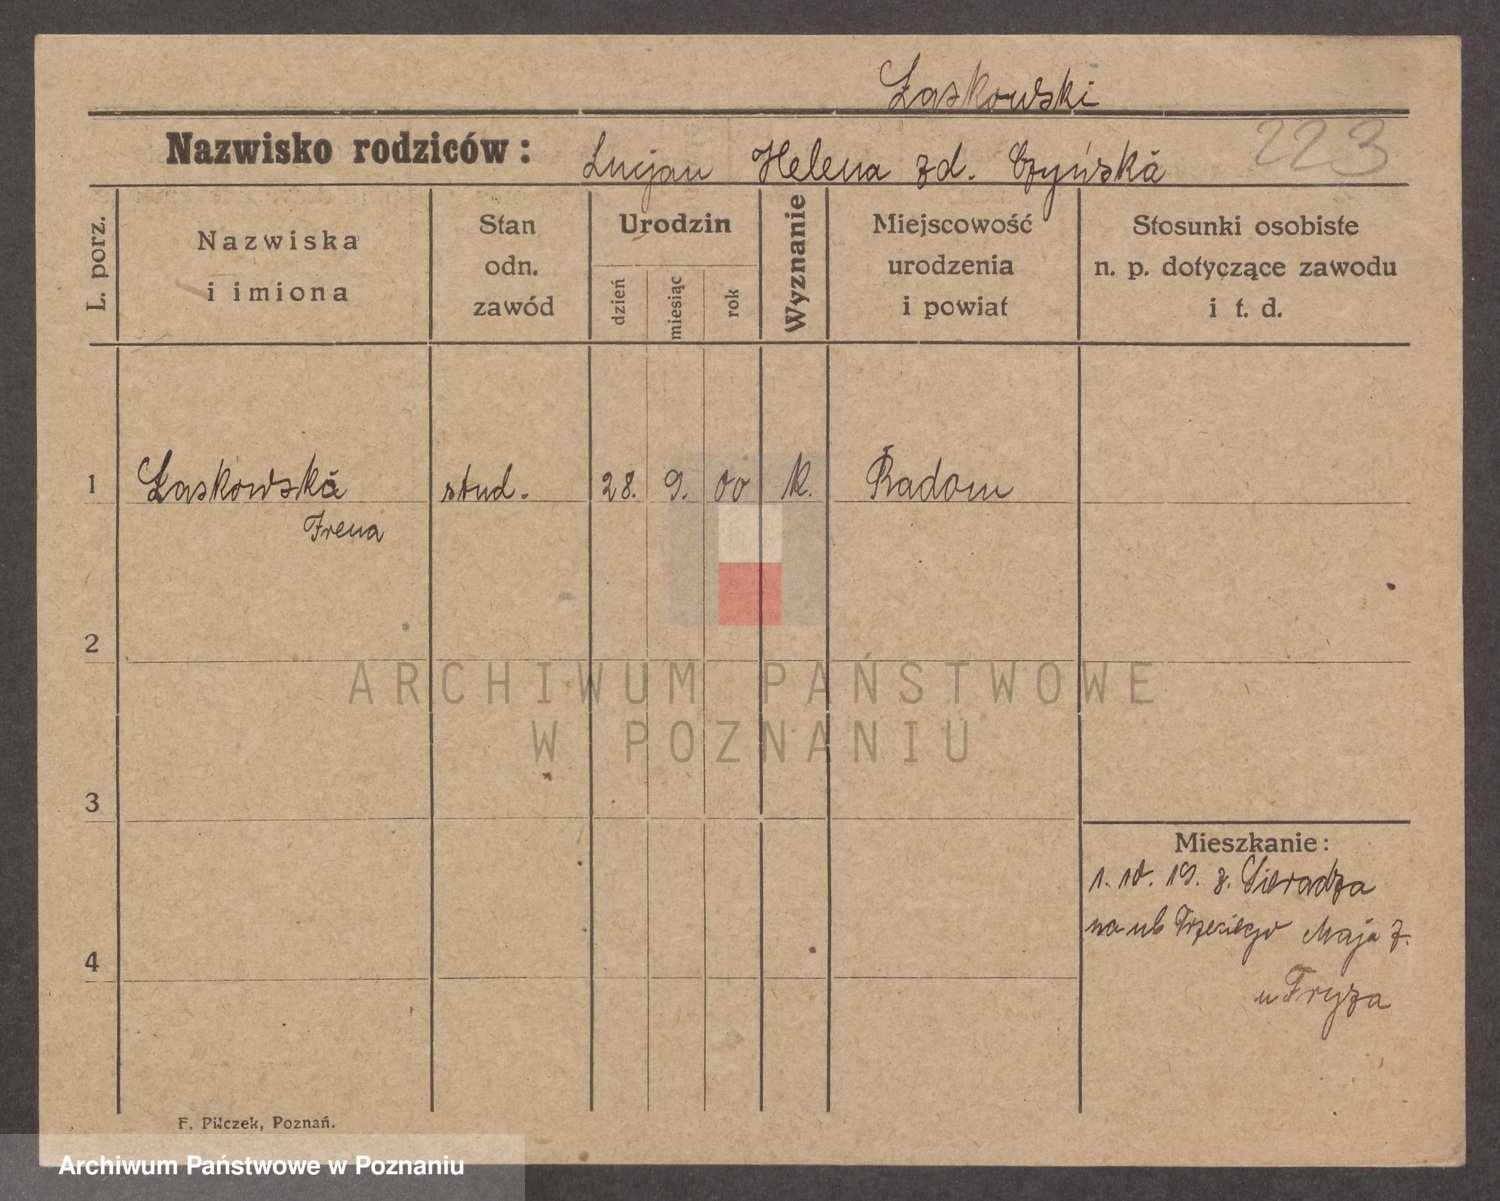 Łaskowski
Nazwisko rodziców: Lucjan Helena zd. Czyńska
223
L. porz.
Nazwiska
i imiona
Stan
odn.
zawód
Urodzin
dzień
miesiąc
rok
Wyznanie
Miejscowość
urodzenia
i powiat
Stosunki osobiste
n. p. dotyczące zawodu
i t. d.
1 Łaskowska stud. 28. 9. 00 k. Radom
Irena
2
ARCHIWUM PAŃSTWOWE
W POZNANIU
3
Mieszkanie:
1. 10. 19. z. Sieradza
na ul. Trzeciego Maja 7.
4
u Fryza
F. Pilczek, Poznań.
Archiwum Państwowe w Poznaniu